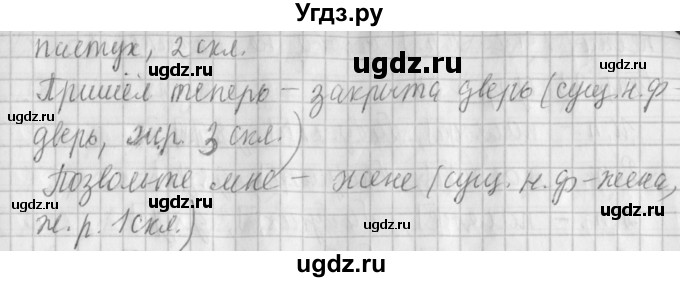 Угдз.ру
пастух, 2 скл.
Пришёл теперь – закрыта дверь (сущ. н.ф-
дверь, ж.р. 3 скл.)
Позвольте мне – жене (сущ. н.ф-жена,
ж.р. 1 скл.)
ugdz.ru
ugdz.ru
ugdz.ru
ugdz.ru
ugdz.ru
ugdz.ru
ugdz.ru
ugdz.ru
ugdz.ru
ugdz.ru
ugdz.ru